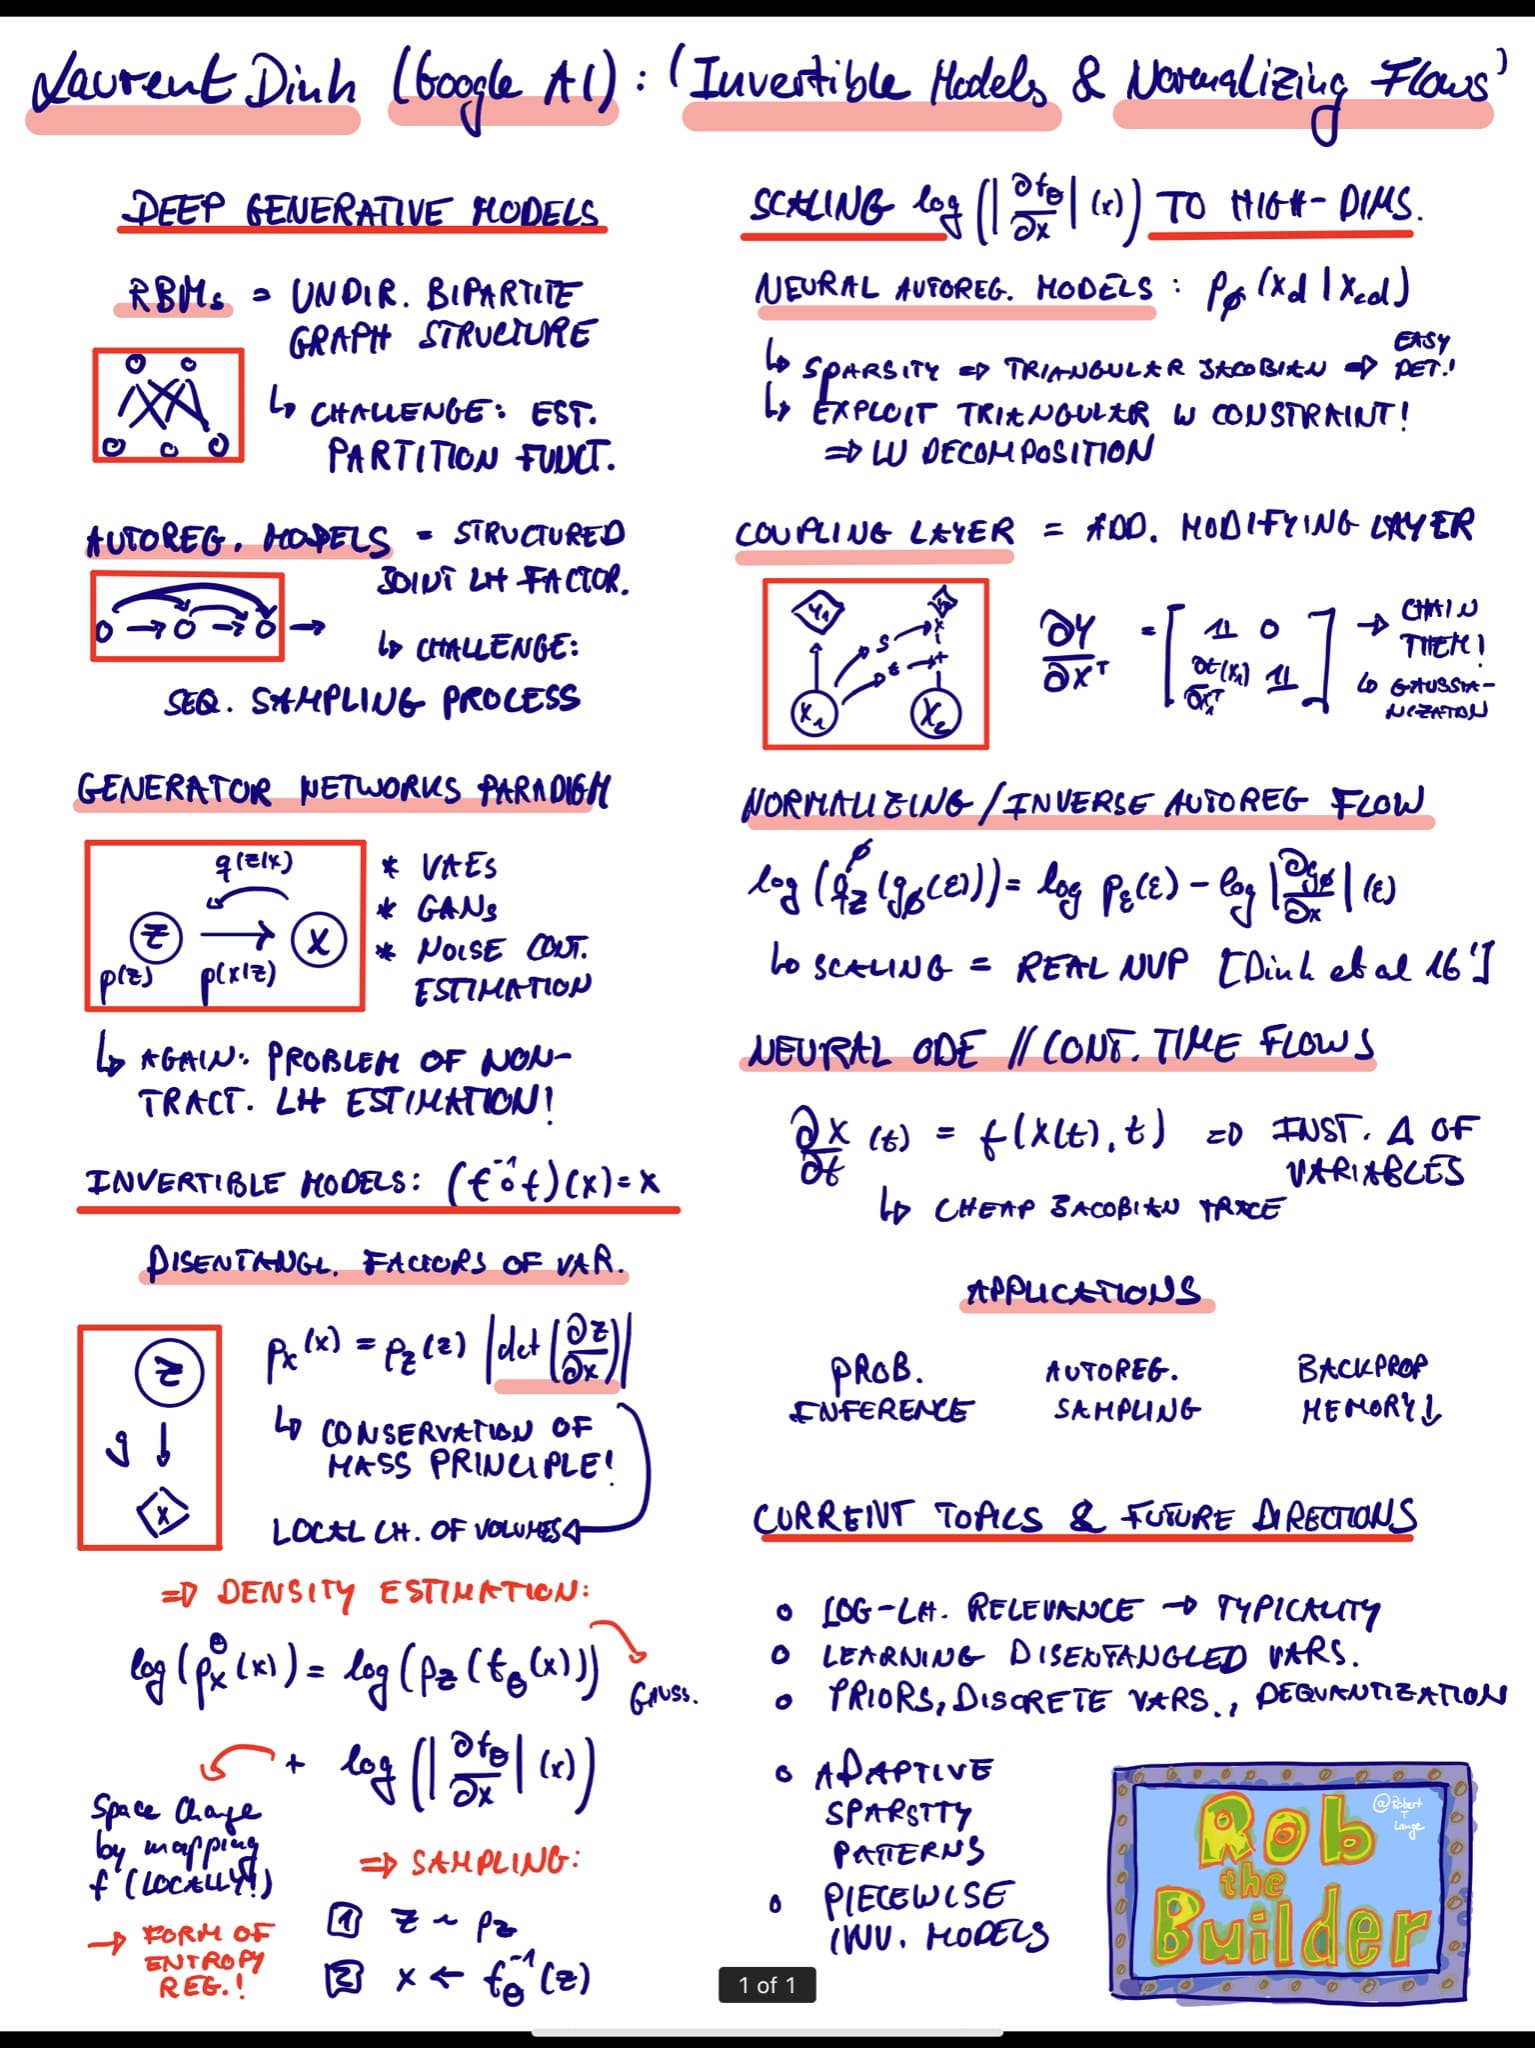 Laurent Dinh (Google AI): 'Invertible Models & Normalizing Flows'
DEEP GENERATIVE MODELS
RBMs = UNDIR. BIPARTITE
GRAPH STRUCTURE
↳ CHALLENGE: EST.
PARTITION FUNCT.
AUTOREG. MODELS = STRUCTURED
JOINT LH FACTOR.
↳ CHALLENGE:
SEQ. SAMPLING PROCESS
GENERATOR NETWORKS PARADIGM
q(z|x)
z → x
p(z) p(x|z)
* VAEs
* GANs
* NOISE CONT.
ESTIMATION
↳ AGAIN: PROBLEM OF NON-
TRACT. LH ESTIMATION!
INVERTIBLE MODELS: (f⁻¹∘f)(x)=x
DISENTANGL. FACTORS OF VAR.
z
g ↓
x
pₓ(x) = p_z(z) |det(∂z/∂x)|
↳ CONSERVATION OF
MASS PRINCIPLE!
LOCAL CH. OF VOLUMES
⇒ DENSITY ESTIMATION:
log(pₓ^θ(x)) = log(p_z(f_θ(x)))
GAUSS.
+ log(|∂f_θ/∂x|(x))
Space Change
by mapping
f (LOCALLY!)
→ FORM OF
ENTROPY
REG.!
⇒ SAMPLING:
1 z ~ p_z
2 x ← f_θ⁻¹(z)
SCALING log(|∂f_θ/∂x|(x)) TO HIGH-DIMS.
NEURAL AUTOREG. MODELS: p_φ(x_d|x_<d)
↳ SPARSITY ⇒ TRIANGULAR JACOBIAN ⇒ EASY
DET.!
↳ EXPLOIT TRIANGULAR W CONSTRAINT!
⇒ LU DECOMPOSITION
COUPLING LAYER = ADD. MODIFYING LAYER
y₁ y₂
s x
t +
x₁ x₂
∂y/∂xᵀ = [𝟙 0
∂t(x₁)/∂x₁ᵀ 𝟙]
→ CHAIN
THEM!
↳ GAUSSIA-
NIZATION
NORMALIZING/INVERSE AUTOREG FLOW
log(q_z^φ(g_φ(ε))) = log p_ε(ε) - log|∂g_φ/∂x|(ε)
↳ SCALING = REAL NVP [Dinh et al 16']
NEURAL ODE // CONT. TIME FLOWS
∂x/∂t (t) = f(x(t), t) ⇒ INST. Δ OF
VARIABLES
↳ CHEAP JACOBIAN TRACE
APPLICATIONS
PROB.
INFERENCE
AUTOREG.
SAMPLING
BACKPROP
MEMORY↓
CURRENT TOPICS & FUTURE DIRECTIONS
o LOG-LH. RELEVANCE → TYPICALITY
o LEARNING DISENTANGLED VARS.
o PRIORS, DISCRETE VARS., DEQUANTIZATION
o ADAPTIVE
SPARSITY
PATTERNS
o PIECEWISE
INV. MODELS
@Robert
T
Lange
Rob
the
Builder
1 of 1